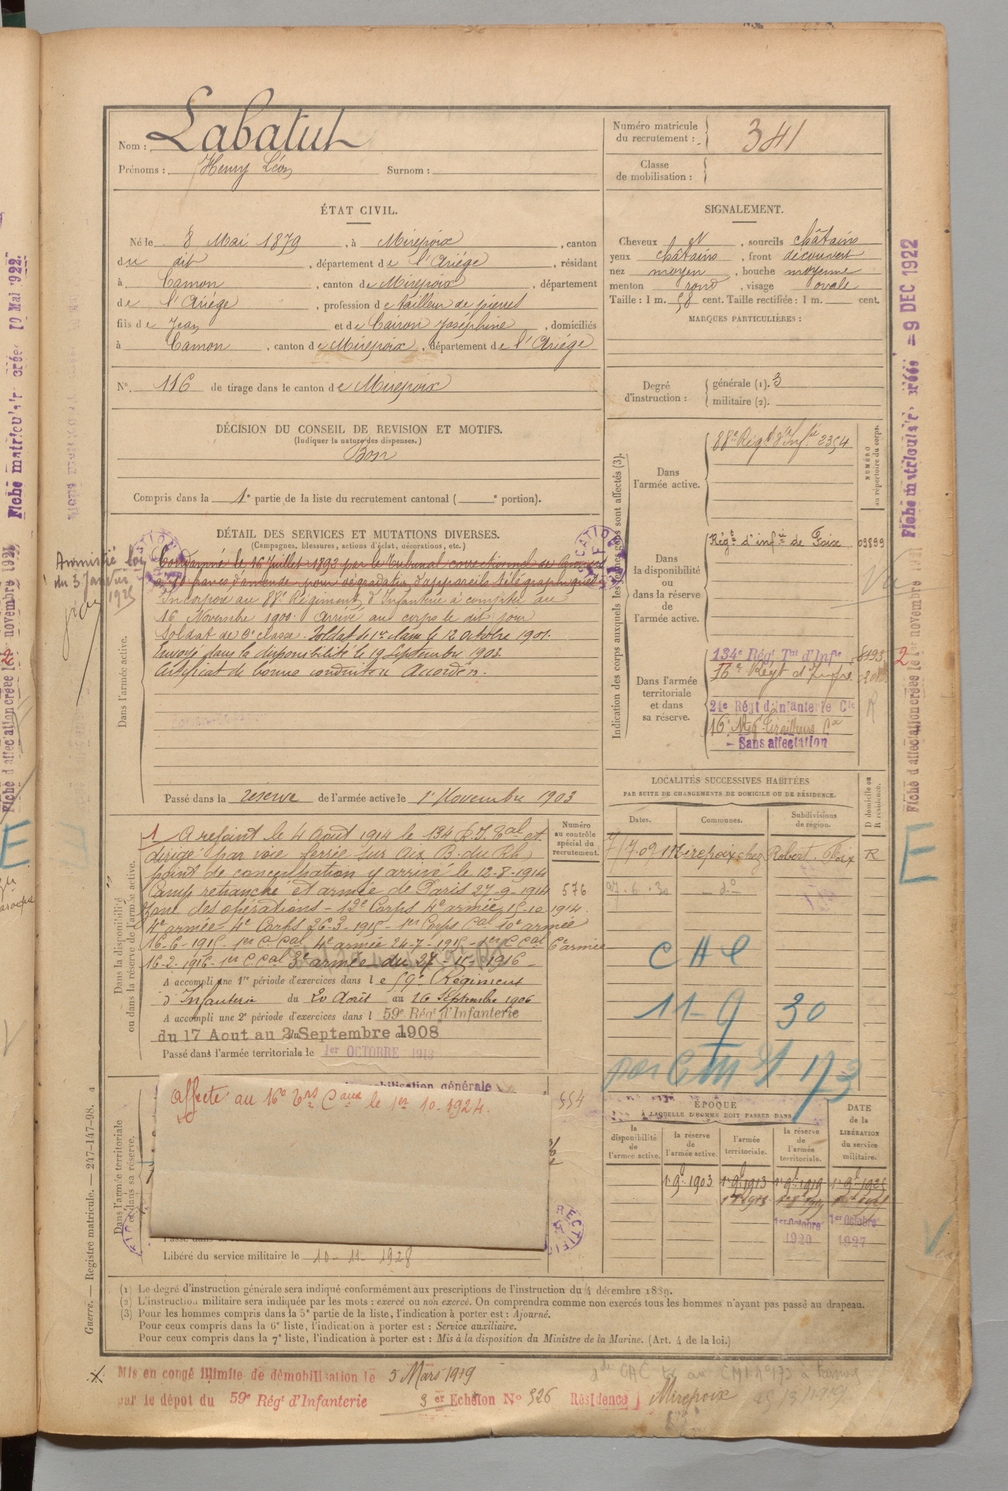 Nom : Labatut
Prénoms : Henry Léon Surnom :
Numéro matricule du recrutement : 341
Classe de mobilisation :
ÉTAT CIVIL.
Né le 8 Mai 1879, à Mirepoix, canton
du dit, département de l'Ariège, résidant
à Camon, canton de Mirepoix, département
de l'Ariège, profession de tailleur de pierres
fils de Jean et de Cairon Joséphine, domiciliés
à Camon, canton de Mirepoix, département de l'Ariège
N° 116 de tirage dans le canton de Mirepoix
SIGNALEMENT.
Cheveux et, sourcils châtains
yeux châtains, front découvert
nez moyen, bouche moyenne
menton rond, visage ovale
Taille : 1 m. 58 cent. Taille rectifiée : 1 m. cent.
MARQUES PARTICULIÈRES :
Degré d'instruction : générale (1). 3
militaire (2).
DÉCISION DU CONSEIL DE REVISION ET MOTIFS.
(Indiquer la nature des dispenses.)
Bon
Compris dans la 1e partie de la liste du recrutement cantonal ( e portion).
DÉTAIL DES SERVICES ET MUTATIONS DIVERSES.
(Campagnes, blessures, actions d'éclat, décorations, etc.)
Condamné le 16 juillet 1893 par le Tribunal correctionnel de
francs d'amende pour dégradation d'appareils télégraphiques
Incorporé au 88e Régiment d'Infanterie à compter du
16 Novembre 1900. Arrivé au corps le dit jour
Soldat de 2e classe. Soldat de 1re classe le 12 Octobre 1901.
Envoyé dans la disponibilité le 19 Septembre 1903.
Certificat de bonne conduite Accordé.
Amnistié loi
du 3 Janvier
1925
Dans l'armée active.
Passé dans la réserve de l'armée active le 1er Novembre 1903
Indication des corps auxquels les jeunes gens sont affectés (3).
NUMÉRO au répertoire du corps.
Dans l'armée active.
88e Régt d'Infie 2354
Dans la disponibilité ou dans la réserve de l'armée active.
Régt d'infie de Foix 03599
Dans l'armée territoriale et dans sa réserve.
134e Rég. Tal d'Infie
24e Régt d'Infanterie Cle
16e Régt Tirailleurs Cx
- Sans affectation
LOCALITÉS SUCCESSIVES HABITÉES
PAR SUITE DE CHANGEMENTS DE DOMICILE OU DE RÉSIDENCE.
Dates. Communes. Subdivisions de région. D domicile ou R résidence.
7-09 Mirepoix chez Robert Foix R
27-6-30 - do -
CAC
11-9 30
par CM 173
Dans la disponibilité ou dans la réserve de l'armée active.
Numéro au contrôle spécial du recrutement.
576
1 A rejoint le 4 Août 1914 le 134 R.I.Tal et
dirigé par voie ferrée sur Aix B. du Rh.
point de concentration y arrivé le 12-8-1914
Camp retranché et armée de Paris 27-9-1914
Zone des opérations - 12e Corps 4e armée 15-10-1914
4e armée - 4e Corps 26-3-1915 - 1er Corps Cal 10e armée
16-6-1915 - 1er C Cal 4e armée 24-7-1915 - 1er C Cal 6e armée
16-2-1916 - 1er C Cal 3e armée du 27-11-1916 -
A accompli une 1re période d'exercices dans le 59e Régiment
d'Infanterie du 20 Août au 16 Septembre 1906
A accompli une 2e période d'exercices dans l 59e Rég. d'Infanterie
du 17 Aout au 2 Septembre 1908
Passé dans l'armée territoriale le 1er OCTOBRE 1913
Dans l'armée territoriale et dans sa réserve.
mobilisation générale
affecté au 16e Trs Caux le 1er 10-1924.
554
Libéré du service militaire le 10-11-1928
ÉPOQUE
À LAQUELLE L'HOMME DOIT PASSER DANS
la disponibilité de l'armée active.
la réserve de l'armée active.
l'armée territoriale.
la réserve de l'armée territoriale.
DATE DE LA LIBÉRATION du service militaire.
1er 9bre 1903 1er 9bre 1913 1er 9bre 1919 1er 9bre 1925
1er Octobre 1920 1er Octobre 1927
(1) Le degré d'instruction générale sera indiqué conformément aux prescriptions de l'instruction du 4 décembre 1889.
(2) L'instruction militaire sera indiquée par les mots : exercé ou non exercé. On comprendra comme non exercés tous les hommes n'ayant pas passé au drapeau.
(3) Pour les hommes compris dans la 5e partie de la liste, l'indication à porter est : Ajourné.
Pour ceux compris dans la 6e liste, l'indication à porter est : Service auxiliaire.
Pour ceux compris dans la 7e liste, l'indication à porter est : Mis à la disposition du Ministre de la Marine. (Art. 4 de la loi.)
Mis en congé illimité de démobilisation le 5 Mars 1919
par le dépôt du 59e Rég. d'Infanterie 3 er Echelon No 326 Résidence Mirepoix
Guerre. — Registre matricule. — 247-147-98.
Fiche matriculaire créée - 9 DEC 1922
Fiche d'affectation créée le 1er novembre 1921
Fiche matriculaire créée 10 Mai 1922.
Fiche d'affectation créée le 1er novembre 192